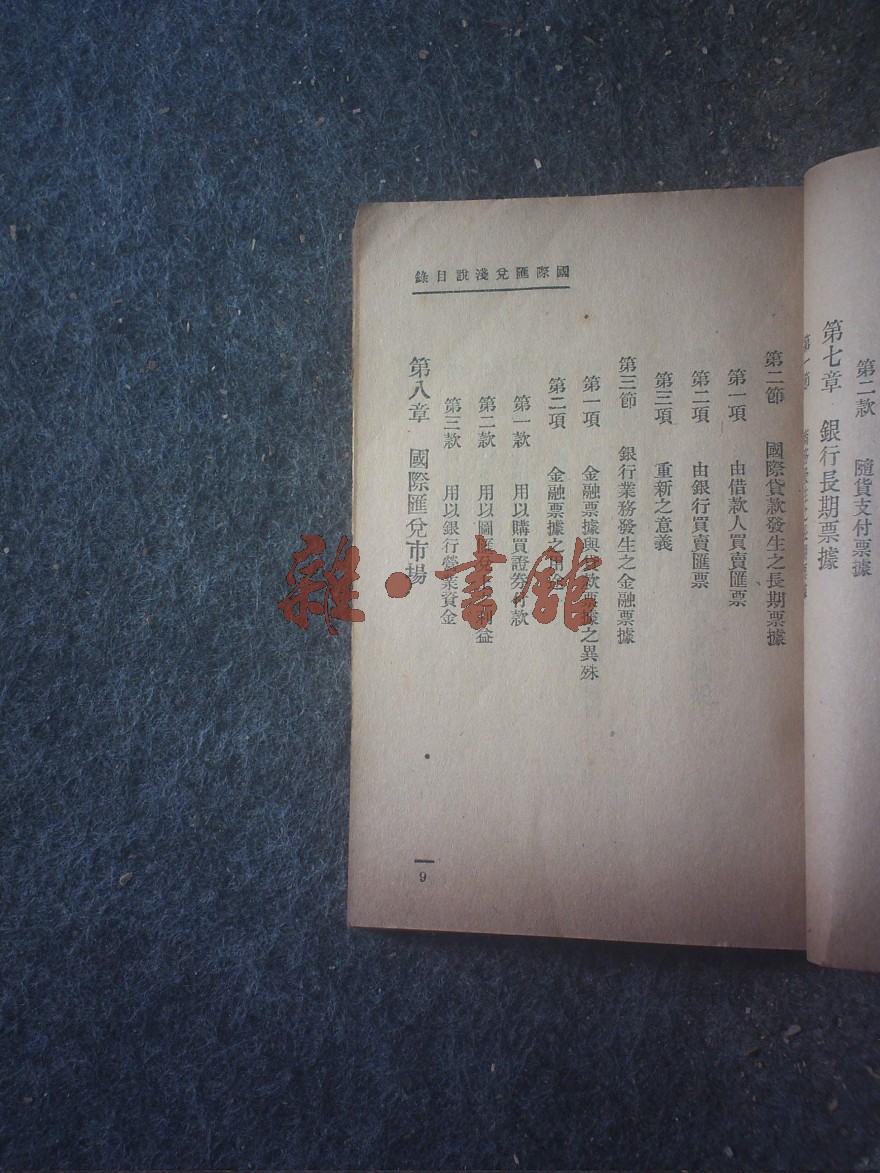 第二款 隨貨支付票據
第七章 銀行長期票據
國際匯兌淺說目錄
第二節 國際貸款發生之長期票據
第一項 由借款人買賣匯票
第二項 由銀行買賣匯票
第三項 重新之意義
第三節 銀行業務發生之金融票據
第一項 金融票據與 款票據之異殊
第二項 金融票據之用途
第一款 用以購買證券付款
第二款 用以圖匯兌 利益
第三款 用以銀行營業資金
第八章 國際匯兌市場
9
雜·書館